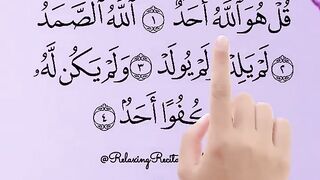 قُلْ هُوَ ٱللَّهُ أَحَدٌ ١ ٱللَّهُ ٱلصَّمَدُ
٢ لَمْ يَلِدْ وَلَمْ يُولَدْ ٣ وَلَمْ يَكُن لَّهُۥ
كُفُوًا أَحَدٌۢ ٤
@RelaxingRecita